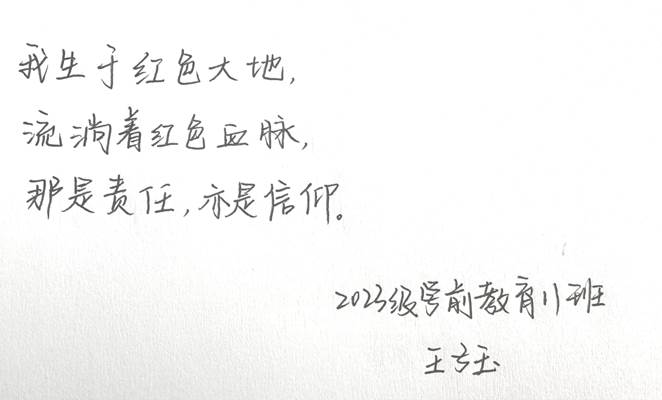 我生于红色大地,
流淌着红色血脉,
那是责任,亦是信仰。
2023级学前教育11班
王玉